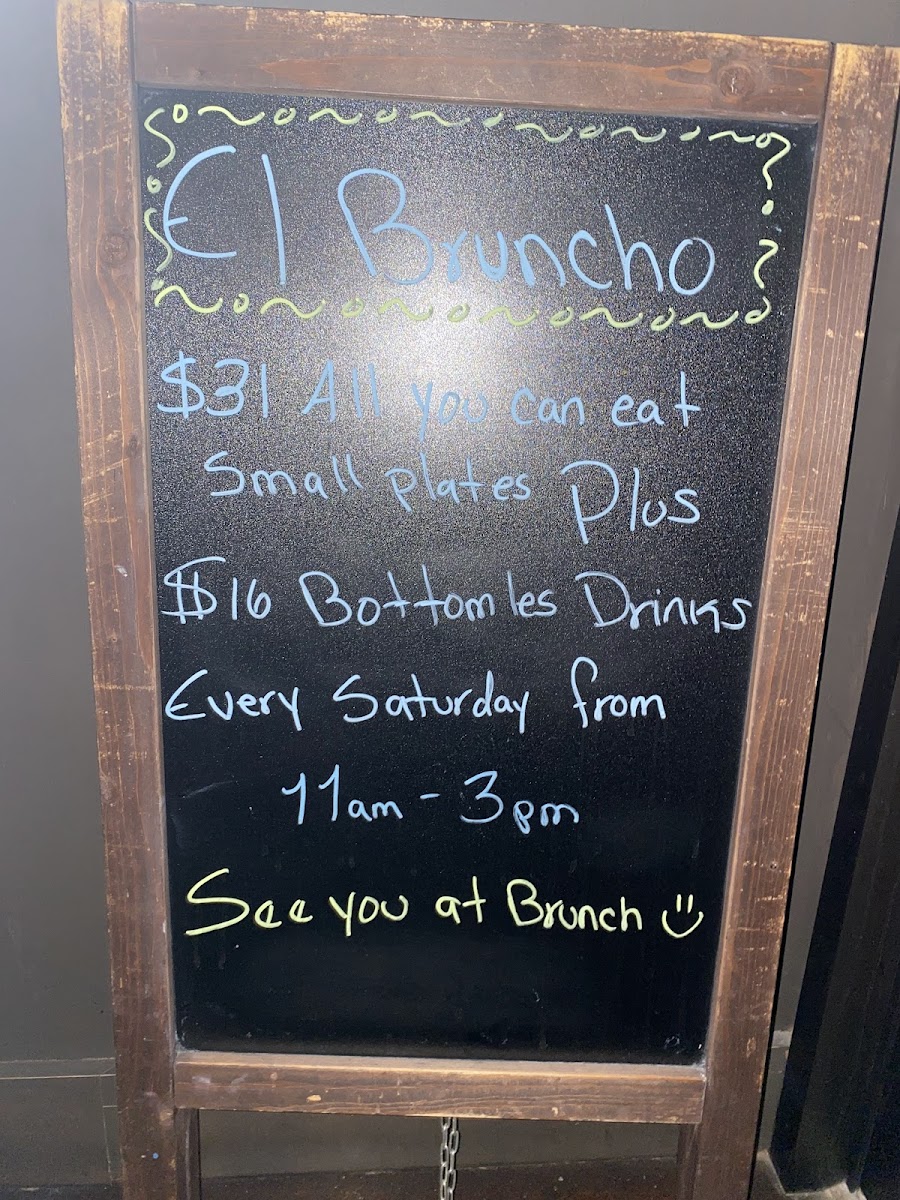 El Bruncho
$31 All you can eat
Small plates Plus
$16 Bottomles Drinks
Every Saturday from
11am - 3pm
See you at Brunch